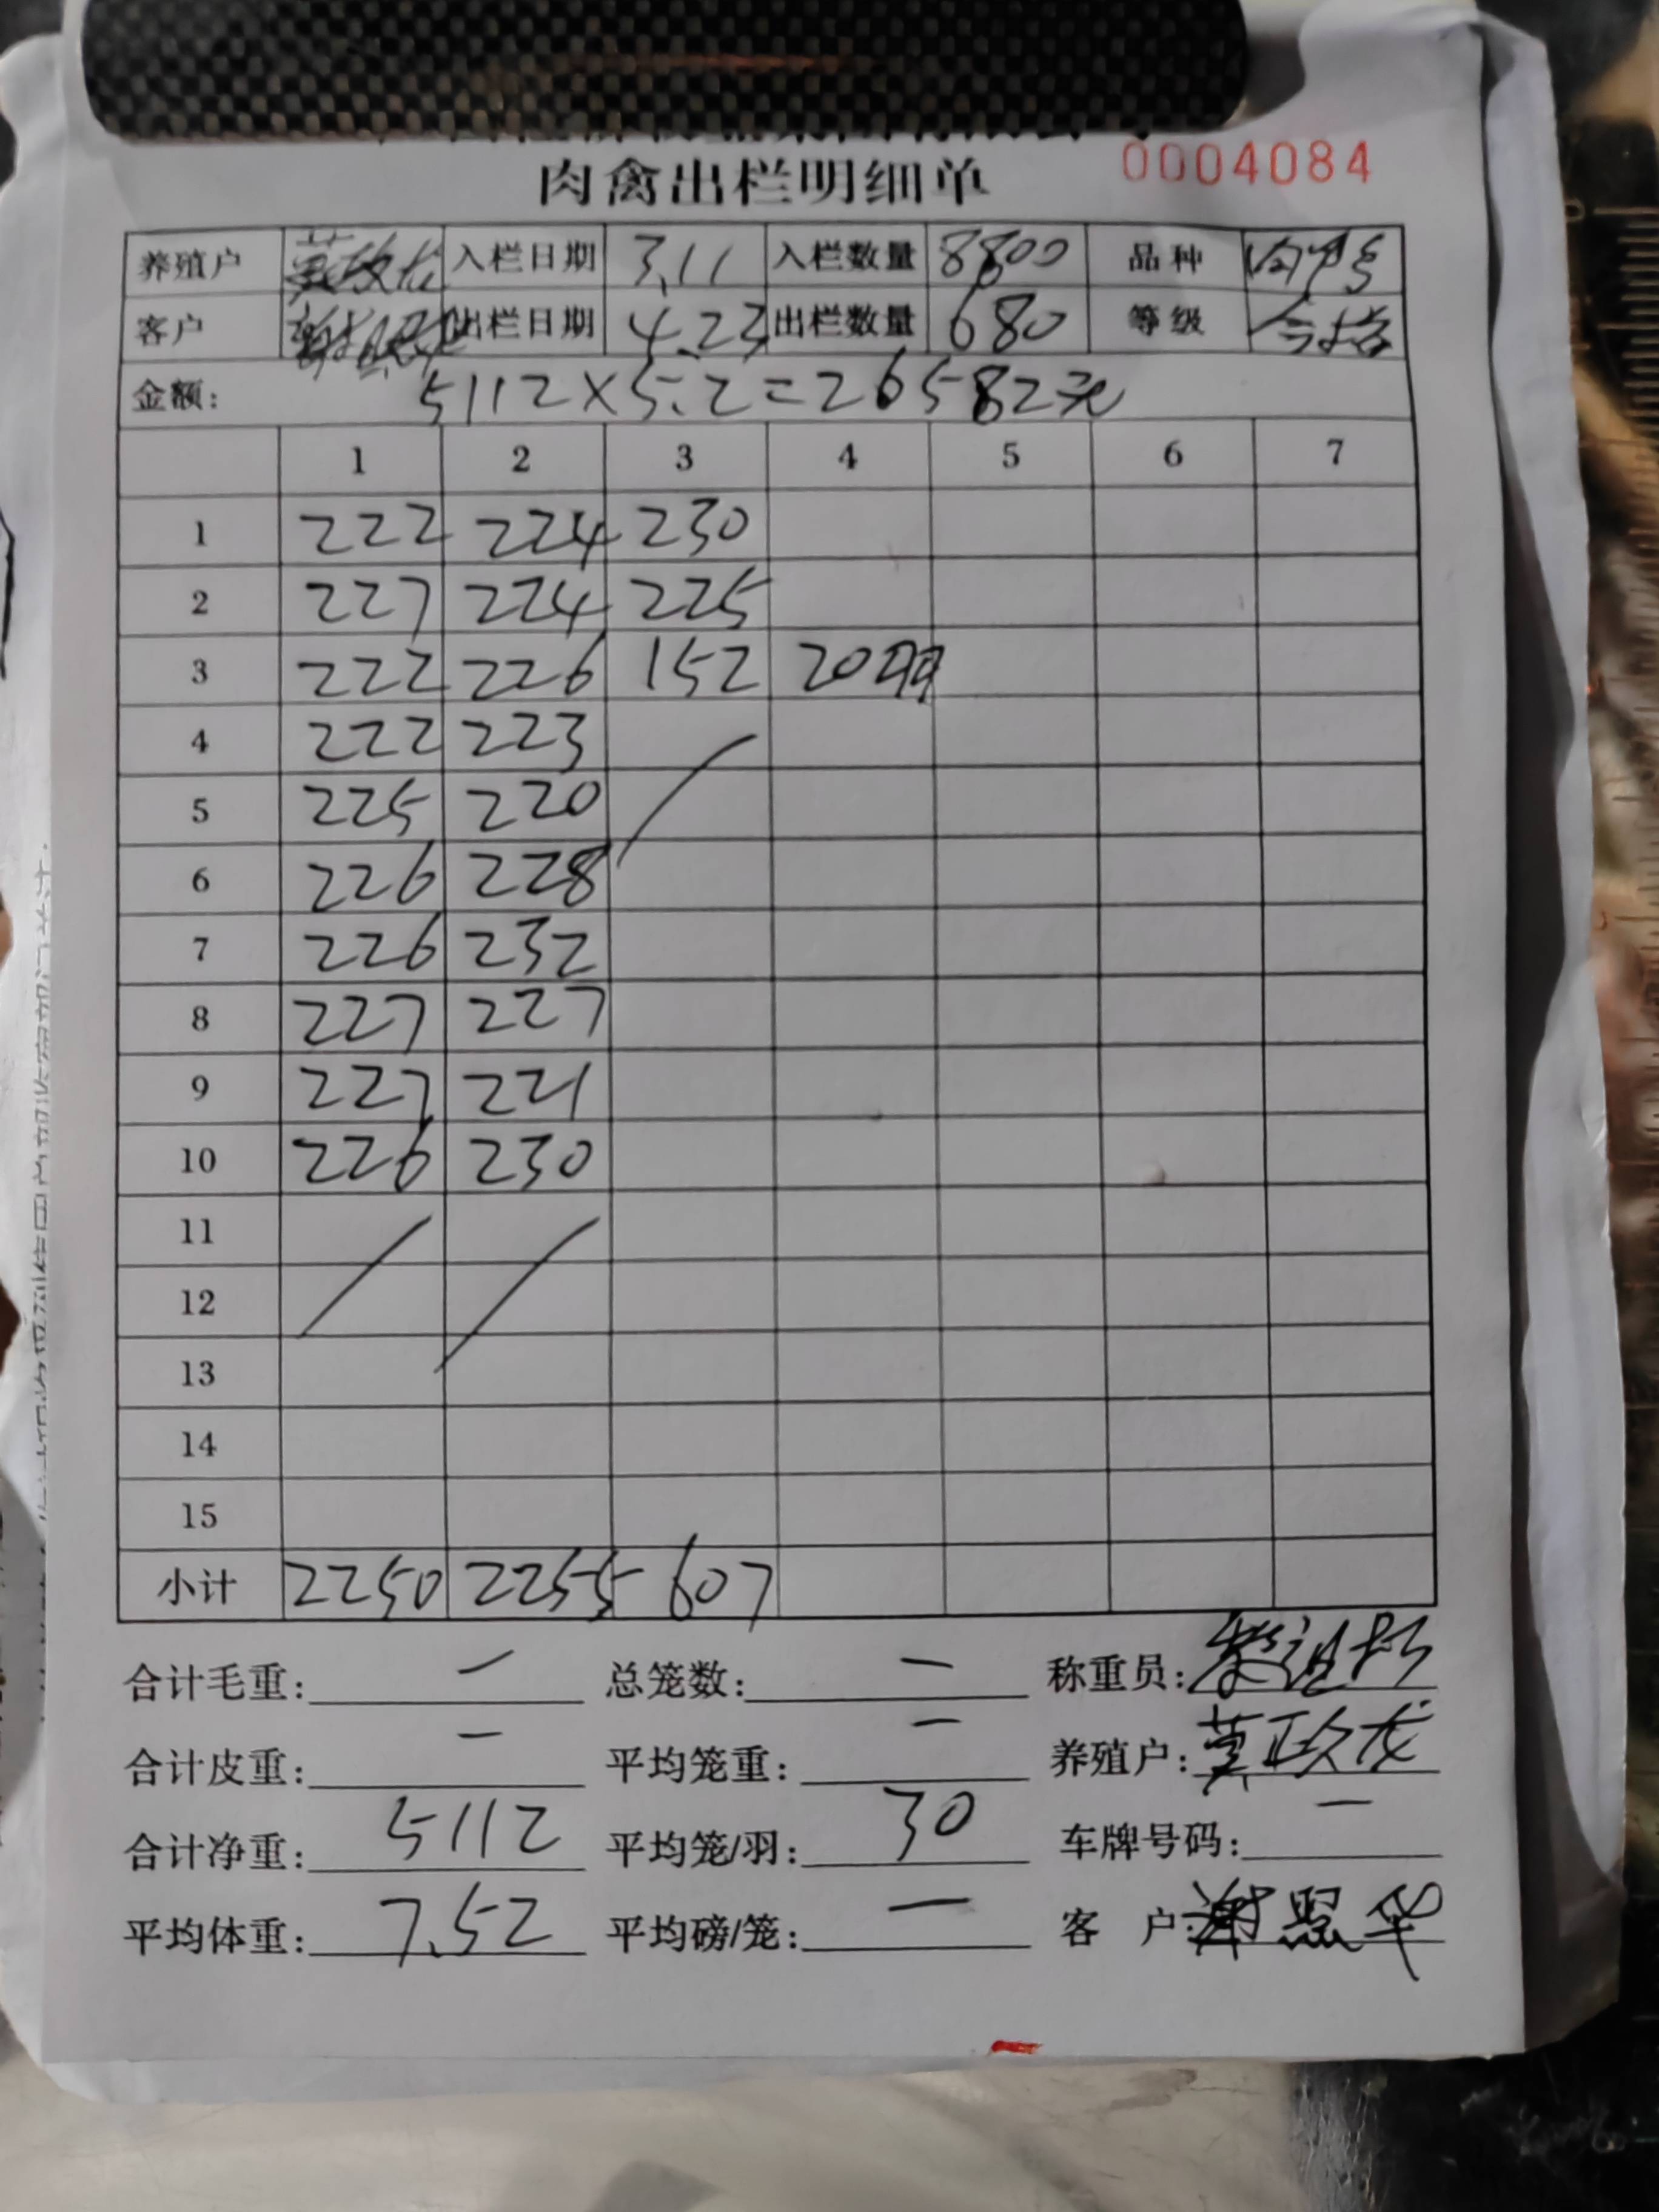 肉禽出栏明细单 0004084
养殖户 莫政龙 入栏日期 3.11 入栏数量 8800 品种
客户 出栏日期 4.23 出栏数量 680 等级 合格
金额: 5112×5.2=26582元
1 2 3 4 5 6 7
1 222 224 230
2 227 224 225
3 222 226 152 20羽
4 222 223
5 225 220
6 226 228
7 226 232
8 227 227
9 227 221
10 226 230
11
12
13
14
15
小计 2250 2255 607
合计毛重: — 总笼数: — 称重员:
合计皮重: — 平均笼重: — 养殖户: 莫政龙
合计净重: 5112 平均笼/羽: 30 车牌号码: —
平均体重: 7.52 平均磅/笼: — 客 户: 谢照华